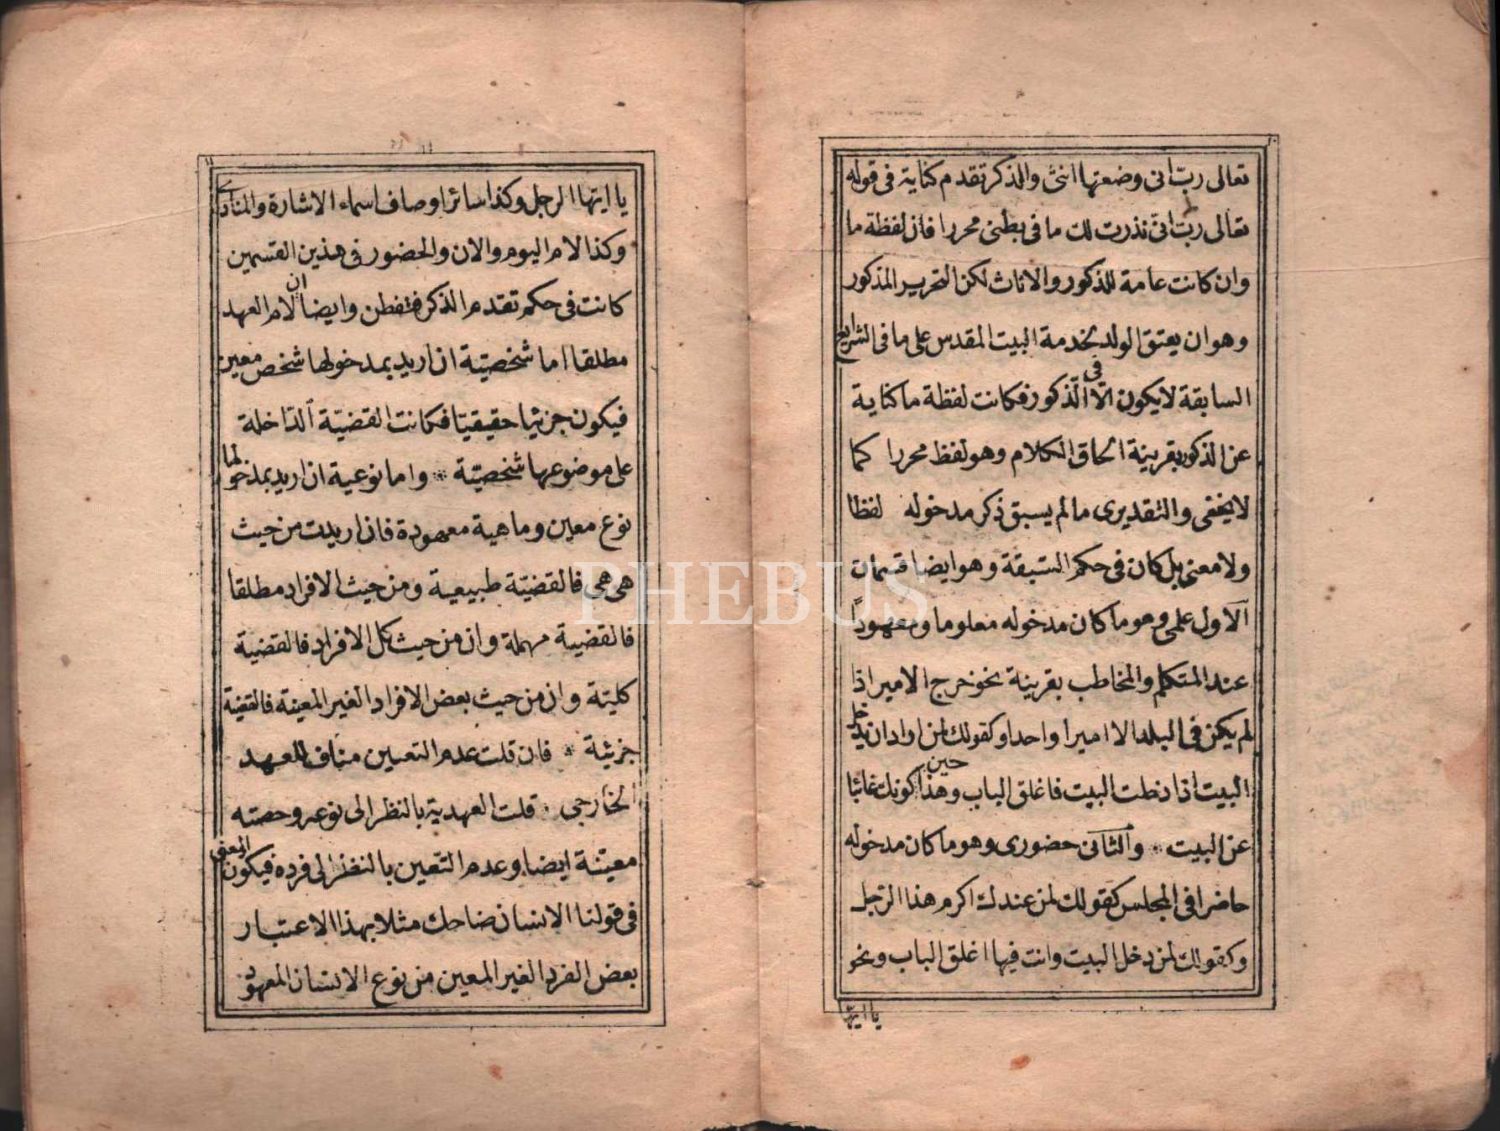 تعالى رب انى وضعتها انثى والذكر تقدم كناية فى قوله
تعالى رب انى نذرت لك ما فى بطنى محررا فان لفظة ما
وان كانت عامة للذكور والاناث لكن التحرير المذكور
وهو ان يعتق الولد بخدمة البيت المقدس على ما فى الشرايع
السابقة لا يكون الا فى الذكور فكانت لفظة ما كناية
عن الذكور بقرينة الحاق الكلام وهو لفظ محررا كما
لا يخفى والتقديرى ما لم يسبق ذكر مدخوله لفظا
ولا معنى بل كان فى حكم السبقة وهو ايضا قسمان
الاول علمى وهو ما كان مدخوله معلوما ومعهودا
عند المتكلم والمخاطب بقرينة نحو خرج الامير اذا
لم يكن فى البلد الا اميرا واحدا وكقولك لمن اراد ان يدخل
البيت اذا دخلت البيت فاغلق الباب وهذا حين كونك غائبا
عن البيت * والثانى حضورى وهو ما كان مدخوله
حاضرا فى المجلس كقولك لمن عندك اكرم هذا الرجل
وكقولك لمن دخل البيت وانت فيها اغلق الباب ونحو
يا ايتها
١١
يا ايتها الرجل وكذا سائر اوصاف اسماء الاشارة والمنادى
وكذا لام اليوم والان والحضور فى هذين القسمين
كانت فى حكم تقدم الذكر فتفطن وايضا ان لام العهد
مطلقا اما شخصية ان اريد بمدخولها شخص معين
فيكون جزئيا حقيقيا فكانت القضية الداخلة
على موضوعها شخصية * واما نوعية ان اريد بمدخولها
نوع معين وماهية معهودة فان اريدت من حيث
هى هى فالقضية طبيعية ومن حيث الافراد مطلقا
فالقضية مهملة وان من حيث كل الافراد فالقضية
كلية وان من حيث بعض الافراد الغير المعينة فالقضية
جزئية * فان قلت عدم التعيين مناف للعهد
الخارجى * قلت العهدية بالنظر الى نوعه وحصته
معينة ايضا وعدم التعين بالنظر الى فرده فيكون المعنى
فى قولنا الانسان ضاحك مثلا بهذا الاعتبار
بعض الفرد الغير المعين من نوع الانسان المعهود
PHEBUS